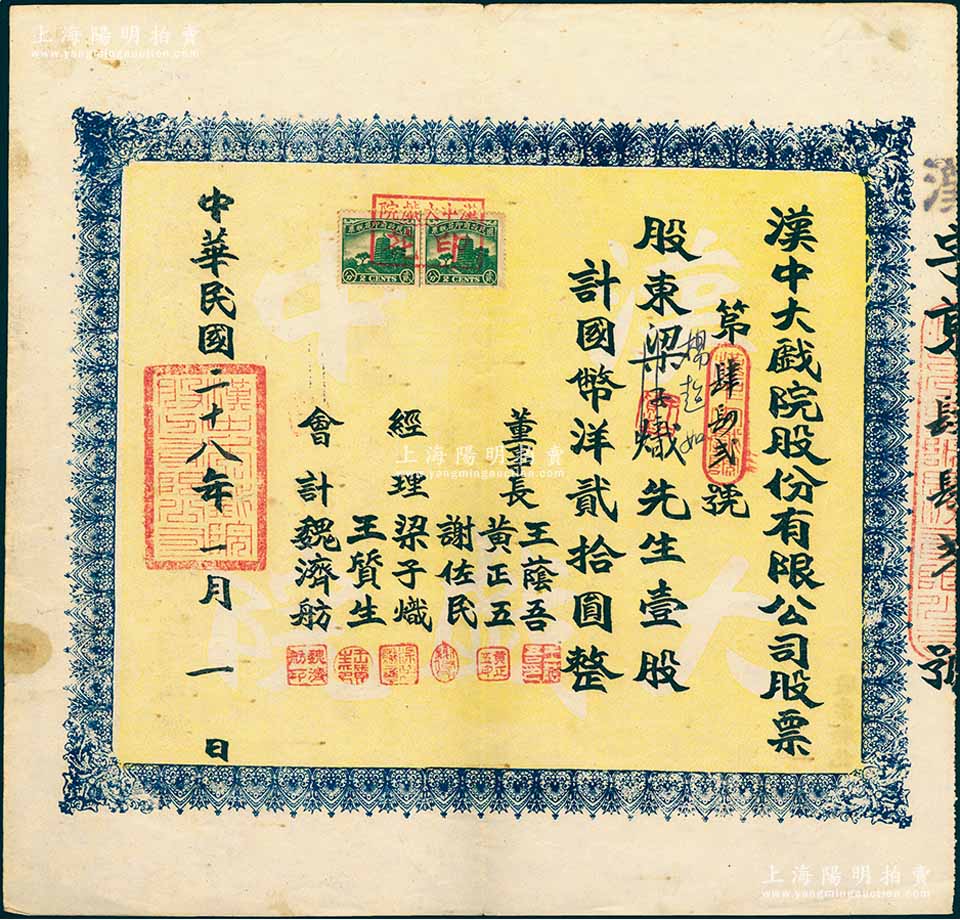 上海陽明拍賣
www.yangmingauction.com
漢中大戲院股份有限公司股票
第肆肆貳號
股東梁子熾先生壹股
楊超如
計國幣洋貳拾圓整
董事長
王蔭吾
黃正五
謝佐民
經理
梁子熾
王質生
會計
魏濟舫
中華民國二十八年一月一日
漢中大戲院
2 CENTS
2 CENTS
上海陽明拍賣
www.yangmingauction.com
上海陽明拍賣
www.yangmingauction.com